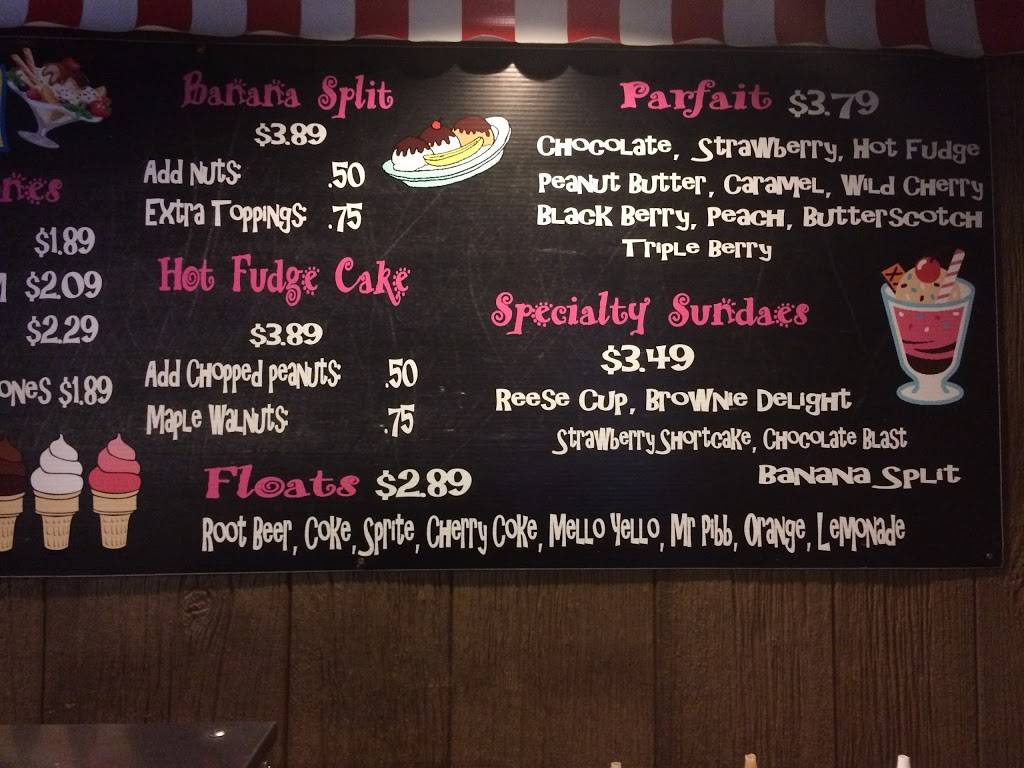 Banana Split
$3.89
Add Nuts: .50
Extra Toppings: .75
Hot Fudge Cake
$3.89
Add Chopped Peanuts: .50
Maple Walnuts: .75
Floats $2.89
Root Beer, Coke, Sprite, Cherry Coke, Mello Yello, Mr Pibb, Orange, Lemonade
Parfait $3.79
Chocolate, Strawberry, Hot Fudge
Peanut Butter, Caramel, Wild Cherry
Black Berry, Peach, Butterscotch
Triple Berry
Specialty Sundaes
$3.49
Reese Cup, Brownie Delight
Strawberry Shortcake, Chocolate Blast
Banana Split
$1.89
$2.09
$2.29
$1.89